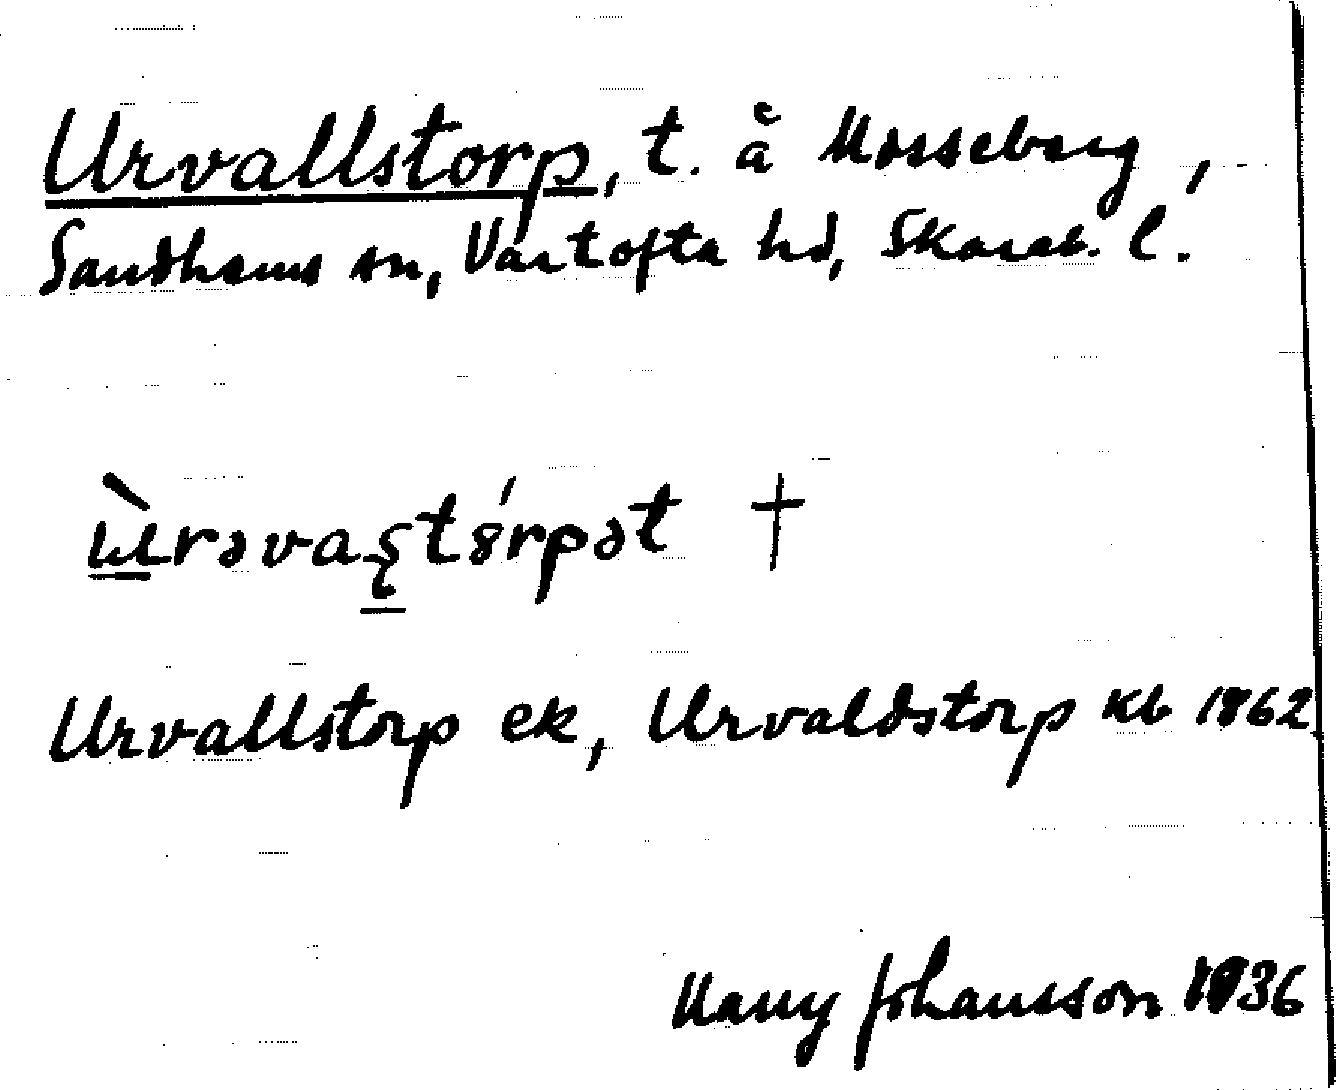 Urvallstorp, t. å Mosseberg,
Sandhems sn, Vartofta hd, Skarab. l.
ɯ̀rəvaʂtɞ́rpət †
Urvallstorp ek, Urvaldstorp Kb 1862
Harry Johansson 1936